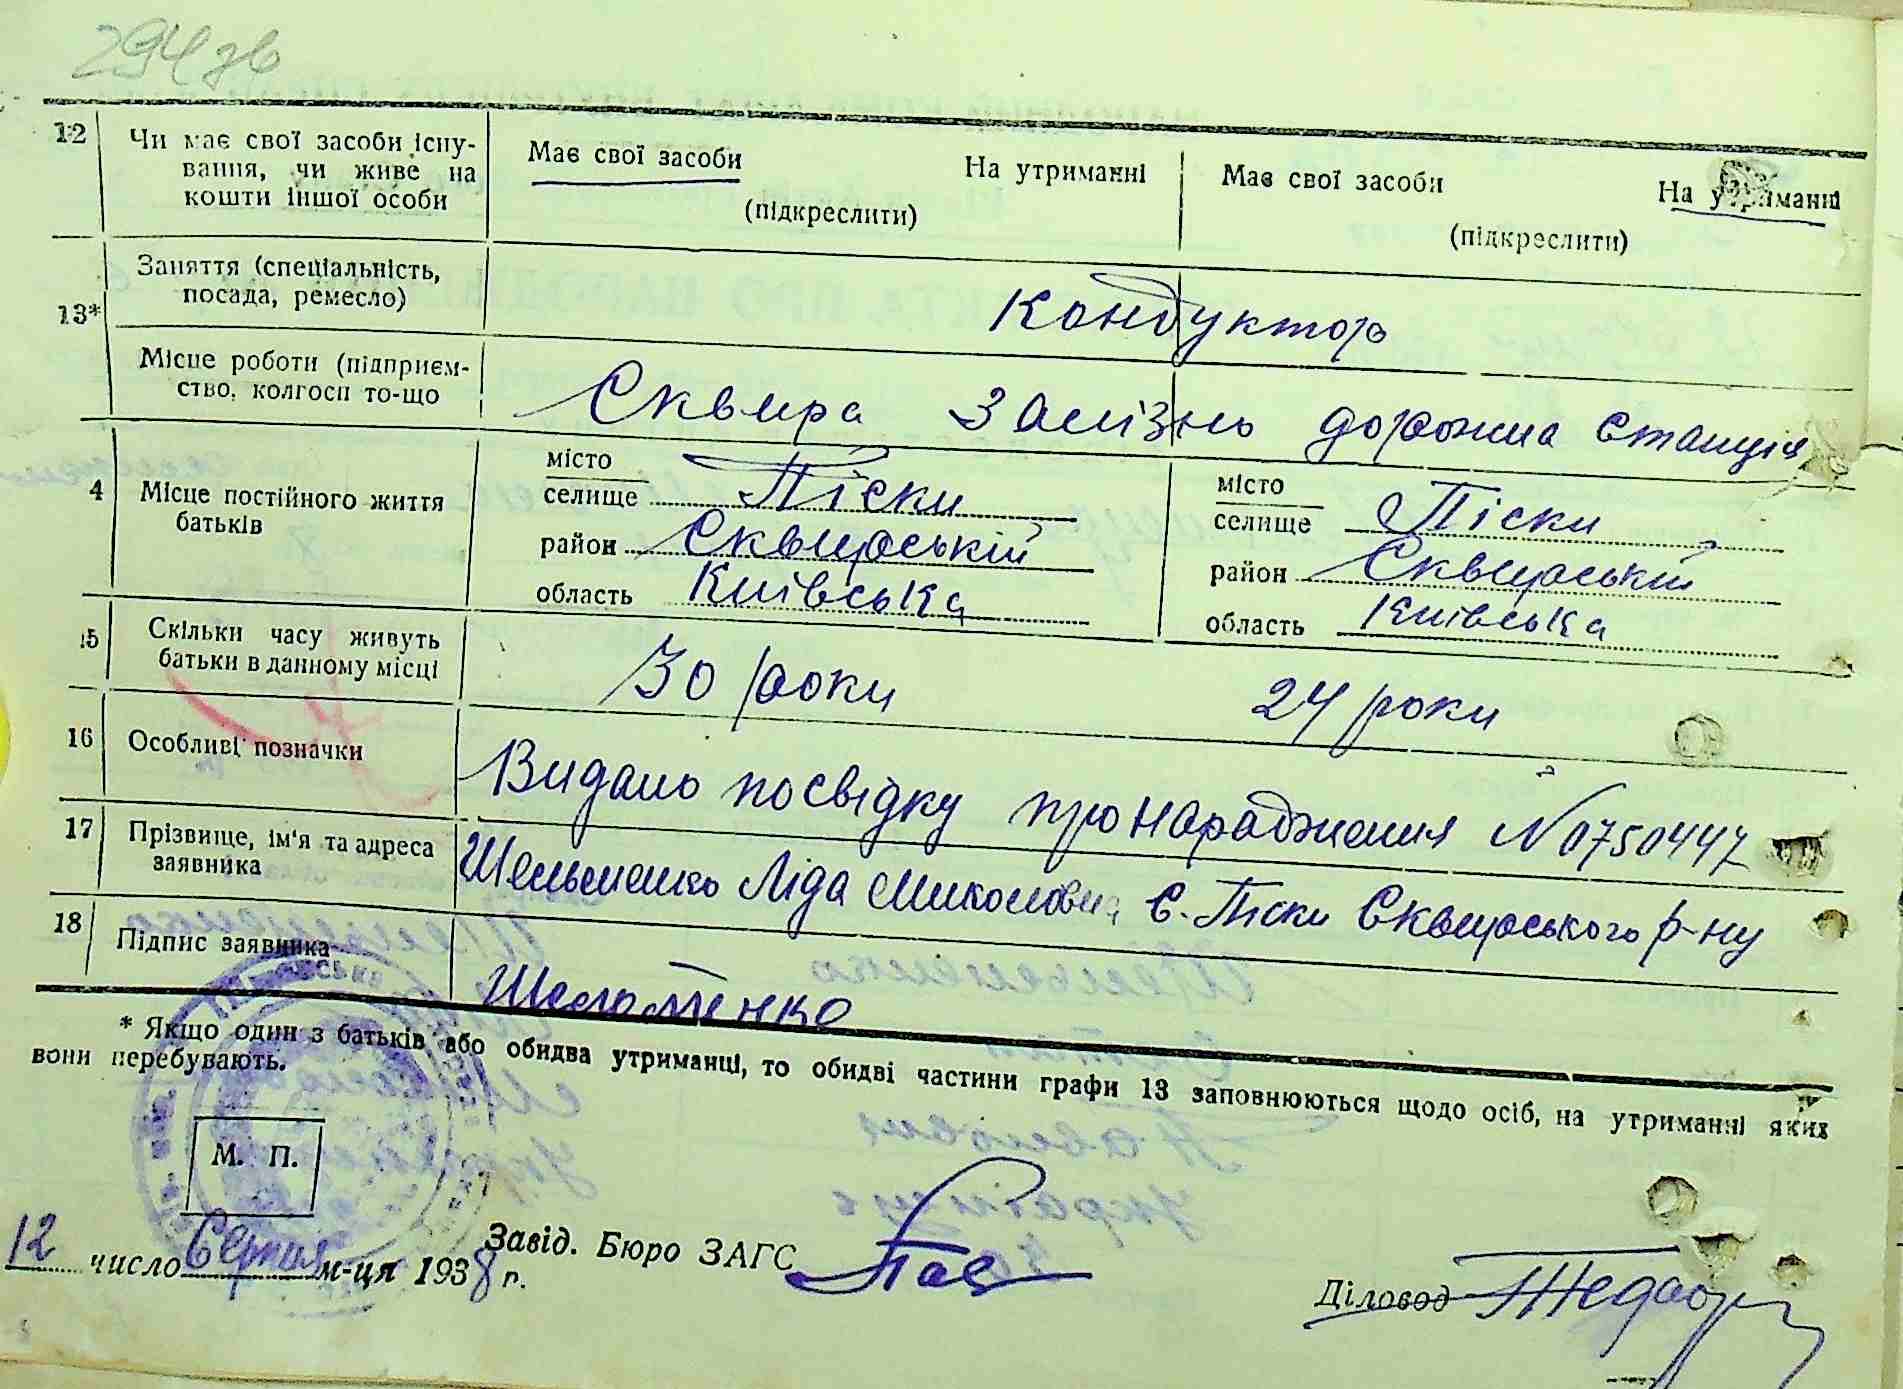 294 зв
12 Чи має свої засоби існу-
вання, чи живе на
кошти іншої особи
Має свої засоби На утриманні
(підкреслити)
Має свої засоби На утриманні
(підкреслити)
13*
Заняття (спеціальність,
посада, ремесло)
Кондуктор
Місце роботи (підприєм-
ство, колгосп то-що
Сквира Залізно дорожна станція
4 Місце постійного життя
батьків
місто
селище Піски
район Сквирський
область Київська
місто
селище Піски
район Сквирський
область Київська
15 Скільки часу живуть
батьки в данному місці
30 роки 24 роки
16 Особливі позначки
Видано посвідку про народження N 0750447
17 Прізвище, ім'я та адреса
заявника
Шельменко Ліда Миколовна с. Піски Сквирського р-ну
18 Підпис заявника
Шельменко
* Якщо один з батьків або обидва утриманці, то обидві частини графи 13 заповнюються щодо осіб, на утриманні яких
вони перебувають.
М. П.
12 число Серпня м-ця 1938 р.
Завід. Бюро ЗАГС
Діловод